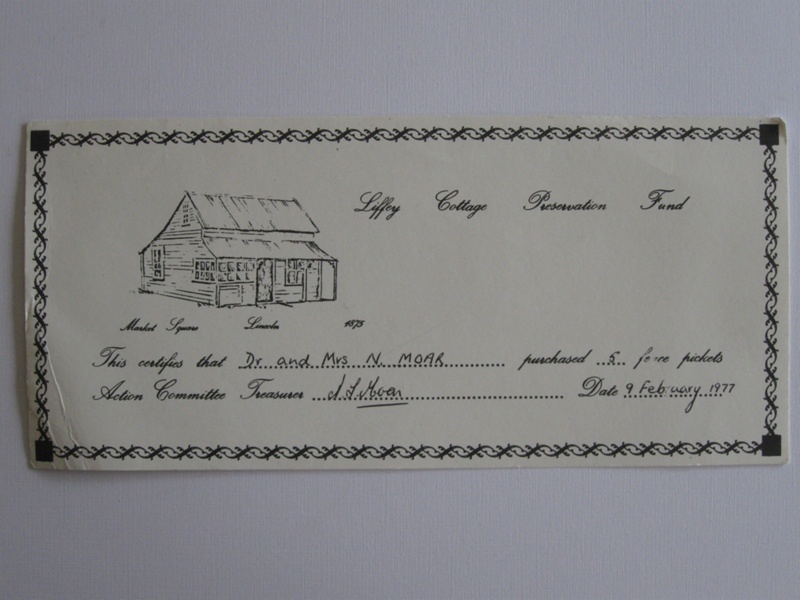 Liffey Cottage Preservation Fund
Market Square Lincoln 1875
This certifies that Dr. and Mrs N. MOAR purchased 5 fence pickets
Action Committee Treasurer Moar Date 9 February 1977